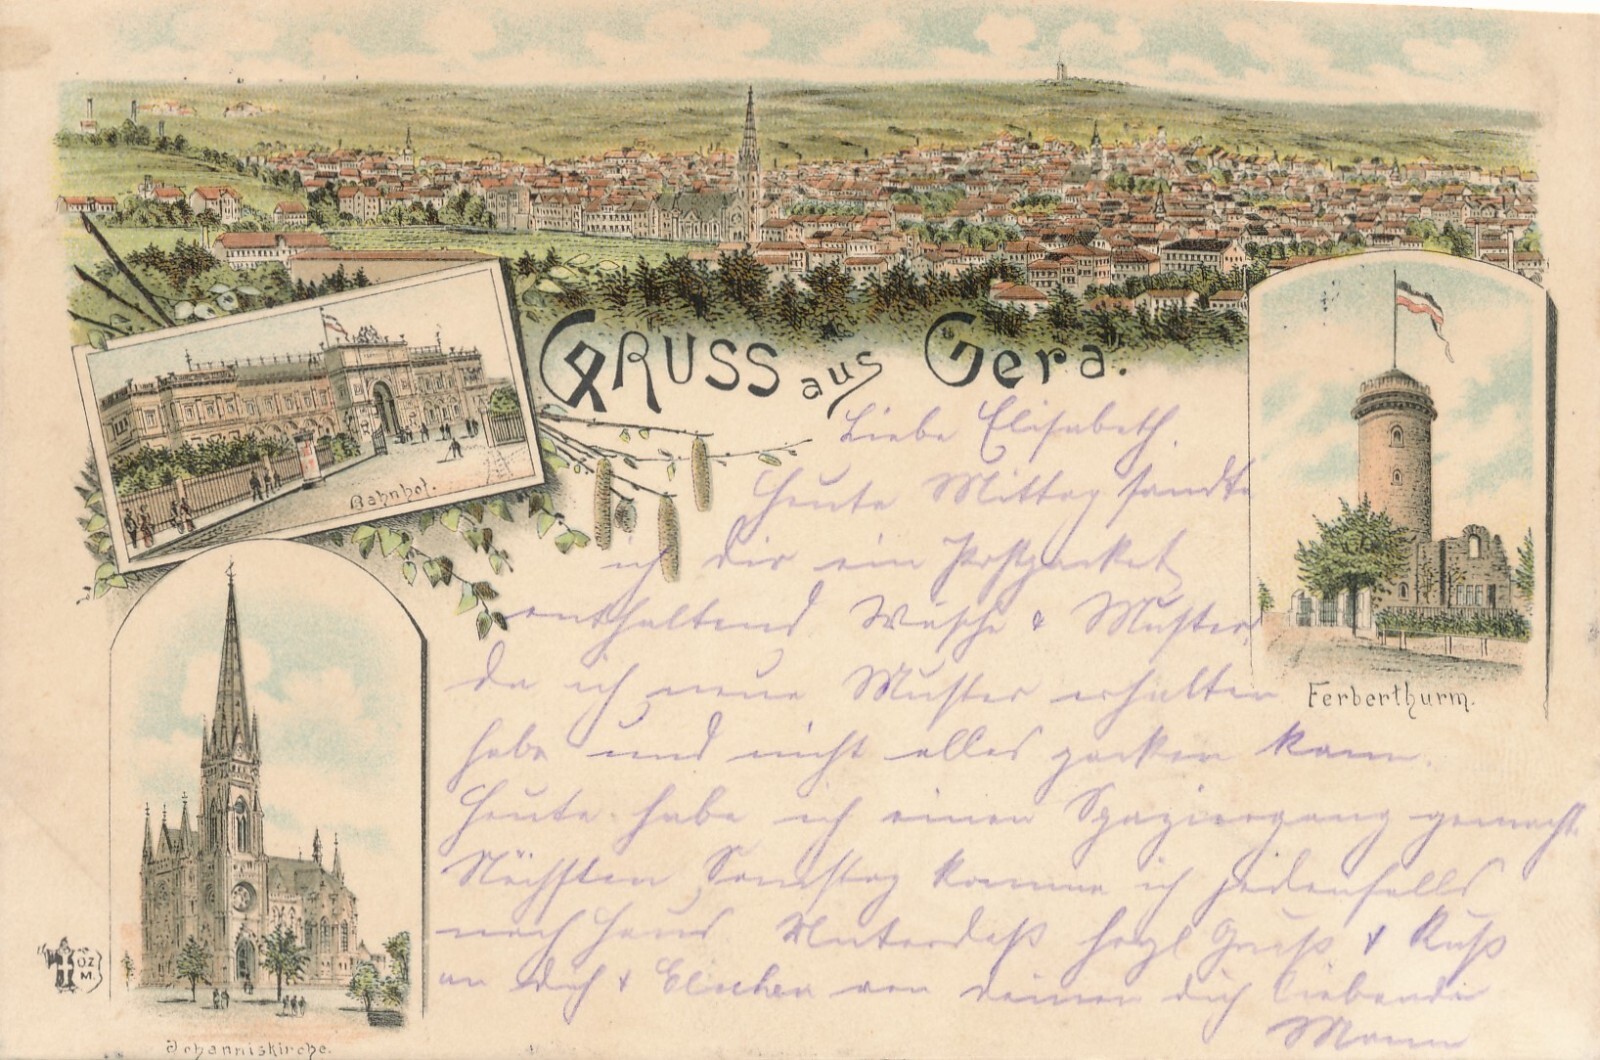 Gruss aus Gera.
Bahnhof.
Ferberthurm.
Johanniskirche.
Liebe Elisabeth.
Heute Mittag sandte
ich dir ein Postpacket
enthaltend Wäsche & Muster
da ich neue Muster erhalten
habe und nicht alles packen kann.
Heute habe ich einen Spaziergang gemacht.
Nächsten Samstag komme ich jedenfalls
nach Haus Unterdeß herzl Gruß & Kuß
an dich & von deinem dich liebenden
Mann